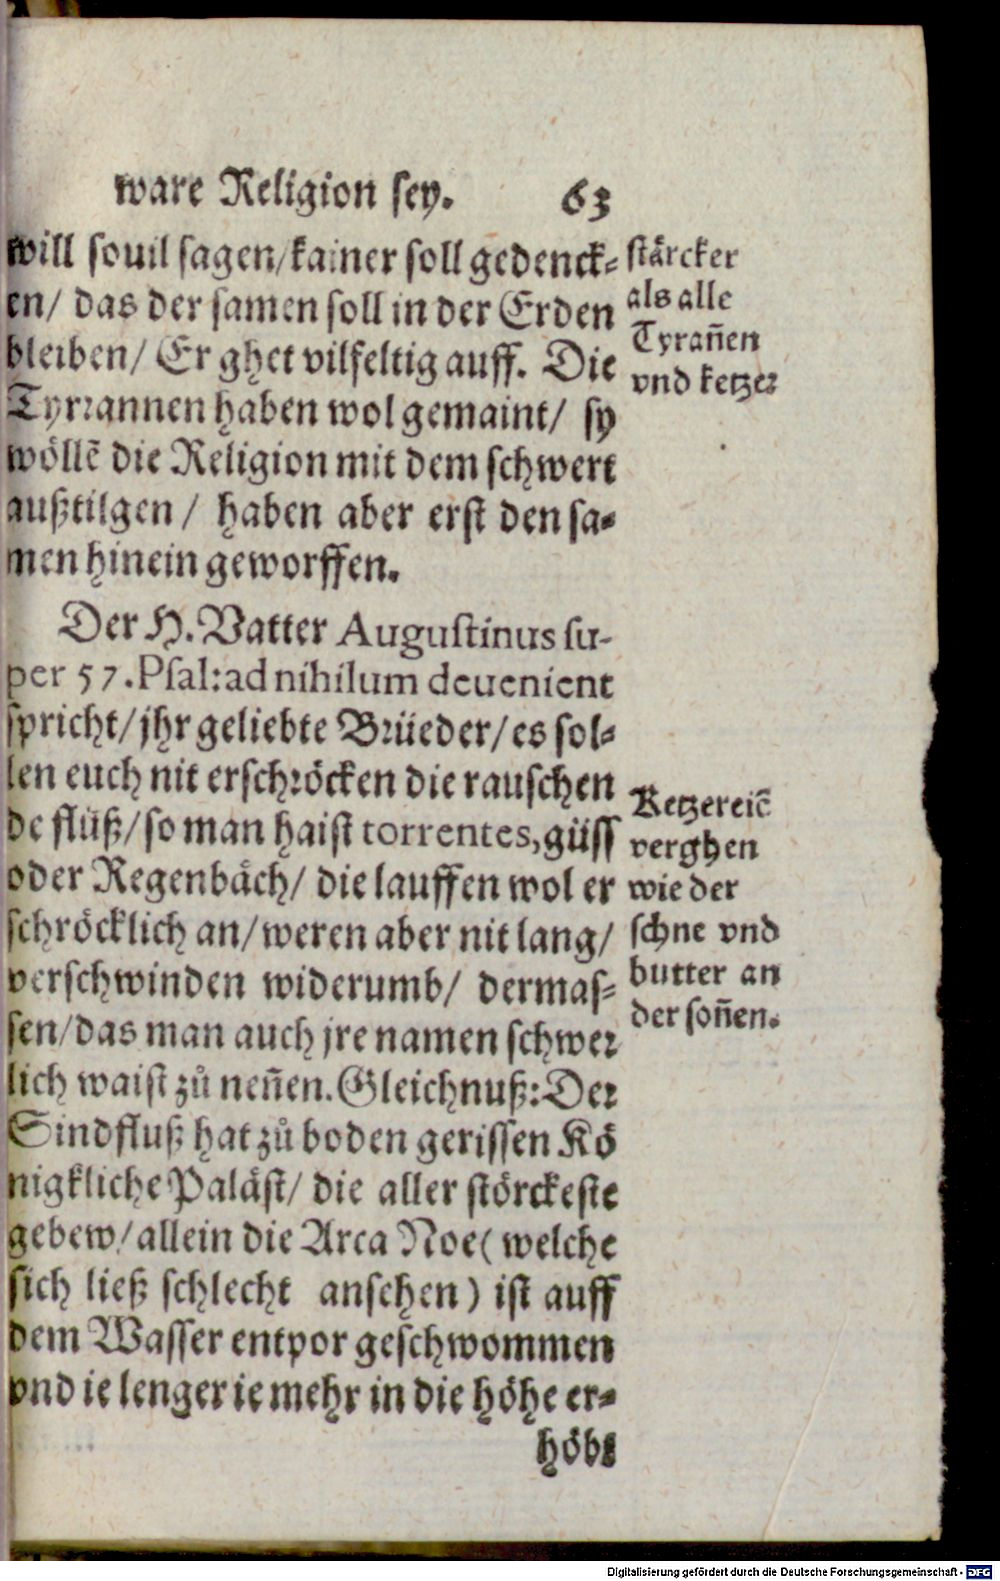 ware Religion sey. 63
will souil sagen/kainer soll gedenck-
en/ das der samen soll in der Erden
bleiben/ Er ghet vilfeltig auff. Die
Tyrrannen haben wol gemaint/ sy
wöllē die Religion mit dem schwert
außtilgen / haben aber erst den sa-
men hinein geworffen.
Der H. Vatter Augustinus su-
per 57. Psal: ad nihilum deuenient
spricht/jhr geliebte Brüeder/es sol-
len euch nit erschröcken die rauschen
de flüß/so man haist torrentes, güss
oder Regenbäch/ die lauffen wol er
schröcklich an/weren aber nit lang/
verschwinden widerumb/ dermas-
sen/das man auch jre namen schwer
lich waist zů neñen. Gleichnuß: Der
Sindfluß hat zů boden gerissen Kö
nigkliche Paläst/ die aller störckeste
gebew/allein die Arca Noe (welche
sich ließ schlecht ansehen) ist auff
dem Wasser entpor geschwommen
vnd ie lenger ie mehr in die höhe er-
höbt
stärcker
als alle
Tyrañen
vnd ketzer
Ketzereiē
verghen
wie der
schne vnd
butter an
der soñen.
Digitalisierung gefördert durch die Deutsche Forschungsgemeinschaft - DFG